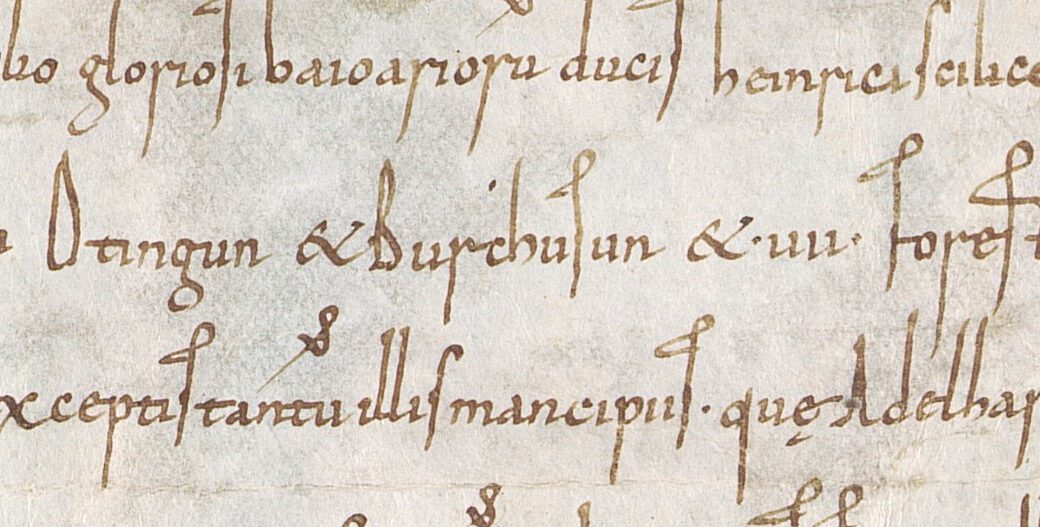 gloriosi baioarioru ducis heinrici scilice
Otingun & Burchusun & ·uii· forest
xceptis tantu illis mancipiis · quę Adelhar